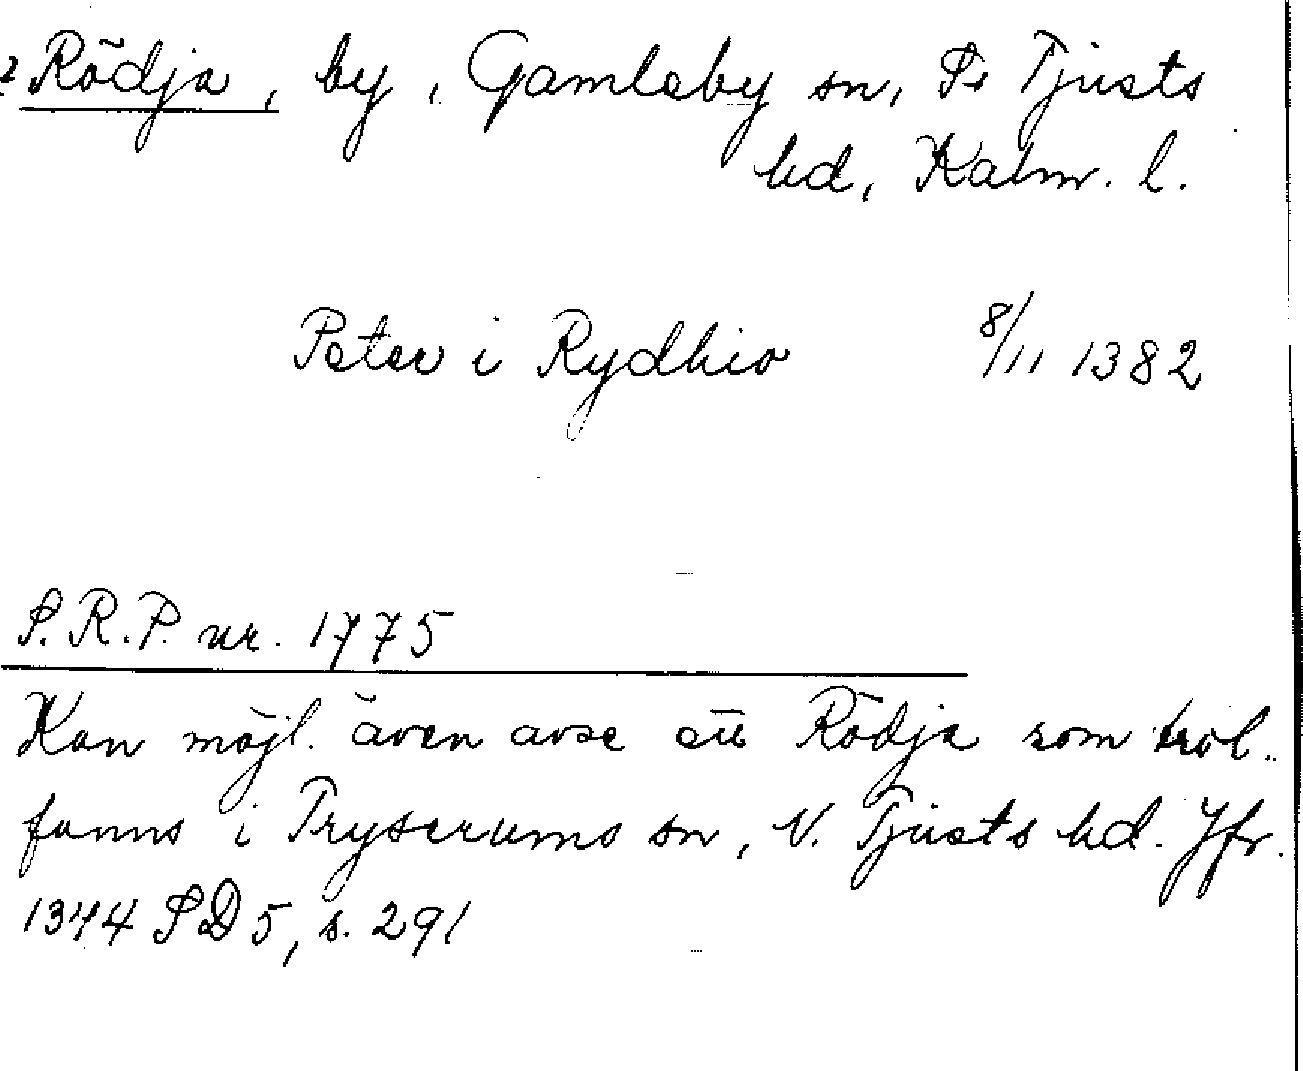 ? Rödja, by, Gamleby sn, S. Tjusts
hd, Kalm. l.
Peter i Rydhio 8/11 1382
S.R.P. nr. 1775
Kan möjl. även avse ett Rödja som trol.
fanns i Tryserums sn, N. Tjusts hd. Jfr.
1344 SD 5, s. 291